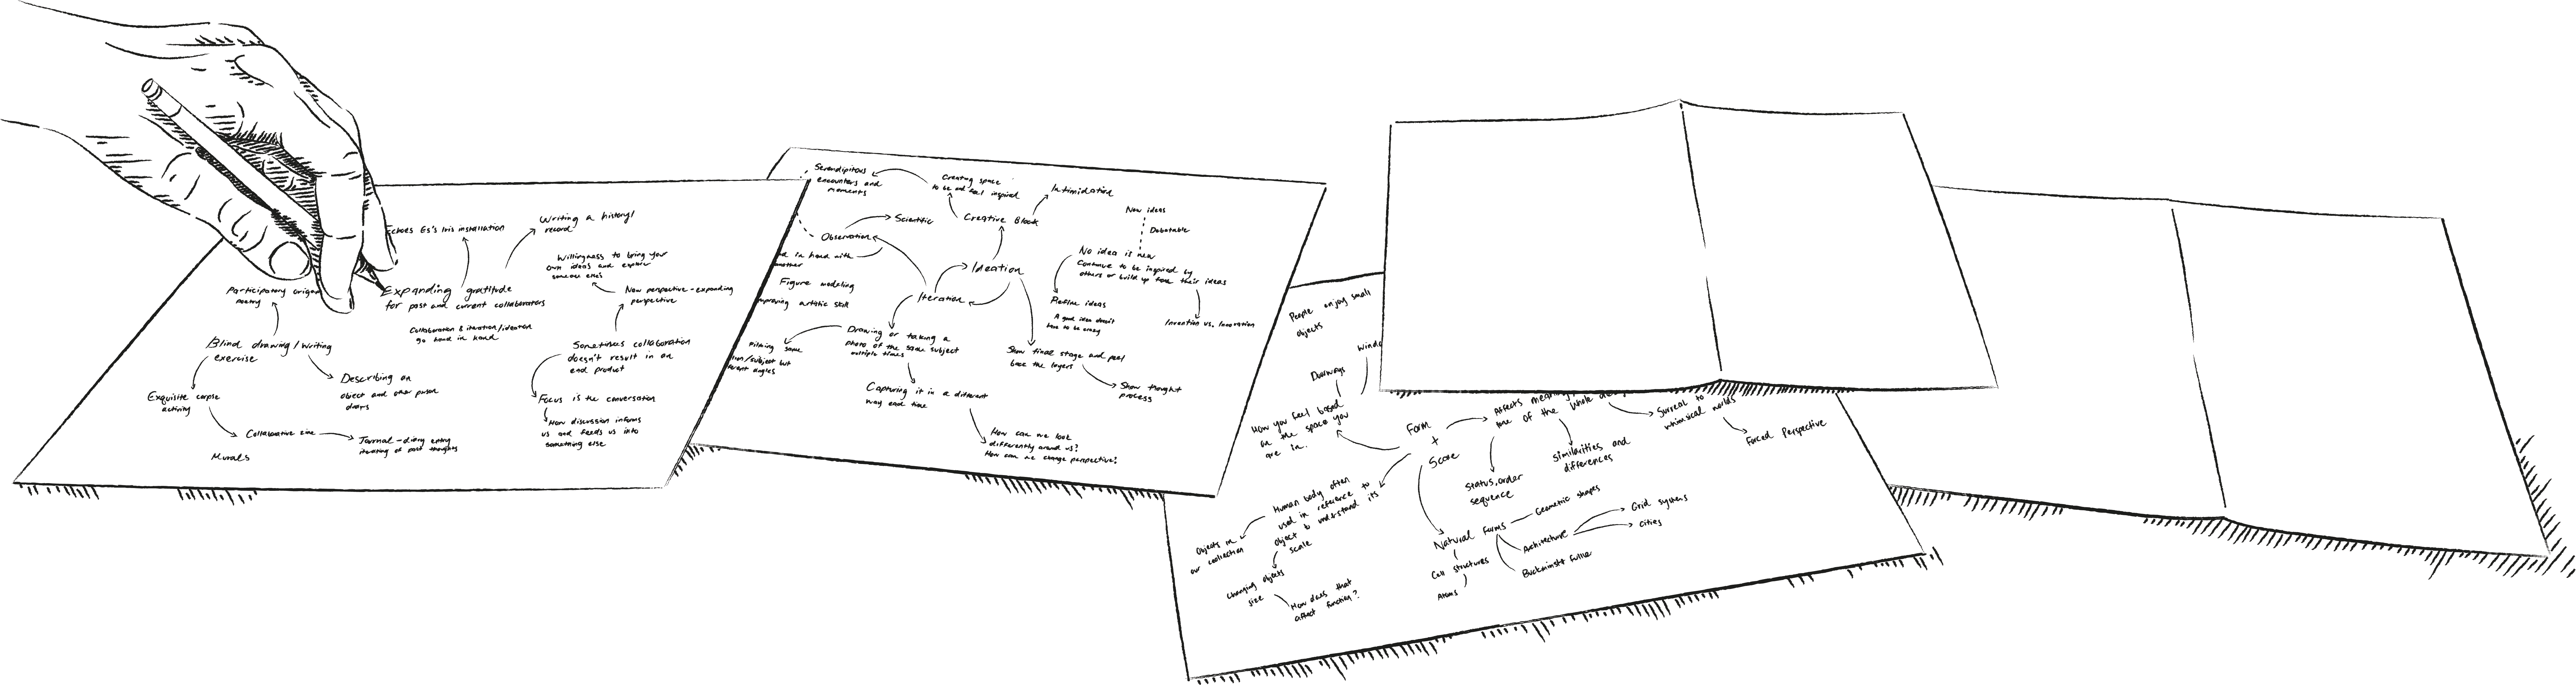 Echoes Es's Iris installation
Writing a history/
record
Willingness to bring your
own ideas and explore
someone else's
Participatory origami
poetry
Expanding gratitude
for past and current collaborators
New perspective - expanding
perspective
Collaboration & iteration/ideation
go hand in hand
Blind drawing/writing
exercise
Sometimes collaboration
doesn't result in an
end product
Describing an
object and other person
draws
Exquisite corpse
activity
Focus is the conversation
How discussion informs
us and feeds us into
something else
Collaborative zine
Journal - diary entry
iterating of past thoughts
Murals
Serendipitous
encounters and
moments
Creating space
to be and feel inspired
Intimidation
Scientific
Creative Block
New ideas
Debatable
Observation
in hand with
another
No idea is new
Continue to be inspired by
others or build up from their ideas
Ideation
Figure modeling
improving artistic skill
Iteration
Refine ideas
A good idea doesn't
have to be crazy
Invention vs. Innovation
Drawing or taking a
photo of the same subject
multiple times
Filming same
subject but
different angles
Show final stage and peel
back the layers
Show thought
process
Capturing it in a different
way each time
How can we look
differently around us?
How can we change perspective?
People enjoy small
objects
Windo
Doorways
How you feel based
on the space you
are in.
Form
+
Scale
Affects meaning
of the whole
Surreal to
whimsical worlds
Forced Perspective
Similarities and
differences
Status, order
sequence
Human body often
used in reference to
object to understand its
scale
Objects in
our collection
Changing objects
size
How does that
affect function?
Natural forms
Geometric shapes
Architecture
Grid systems
Cities
Buckminster Fuller
Cell structures
Atoms